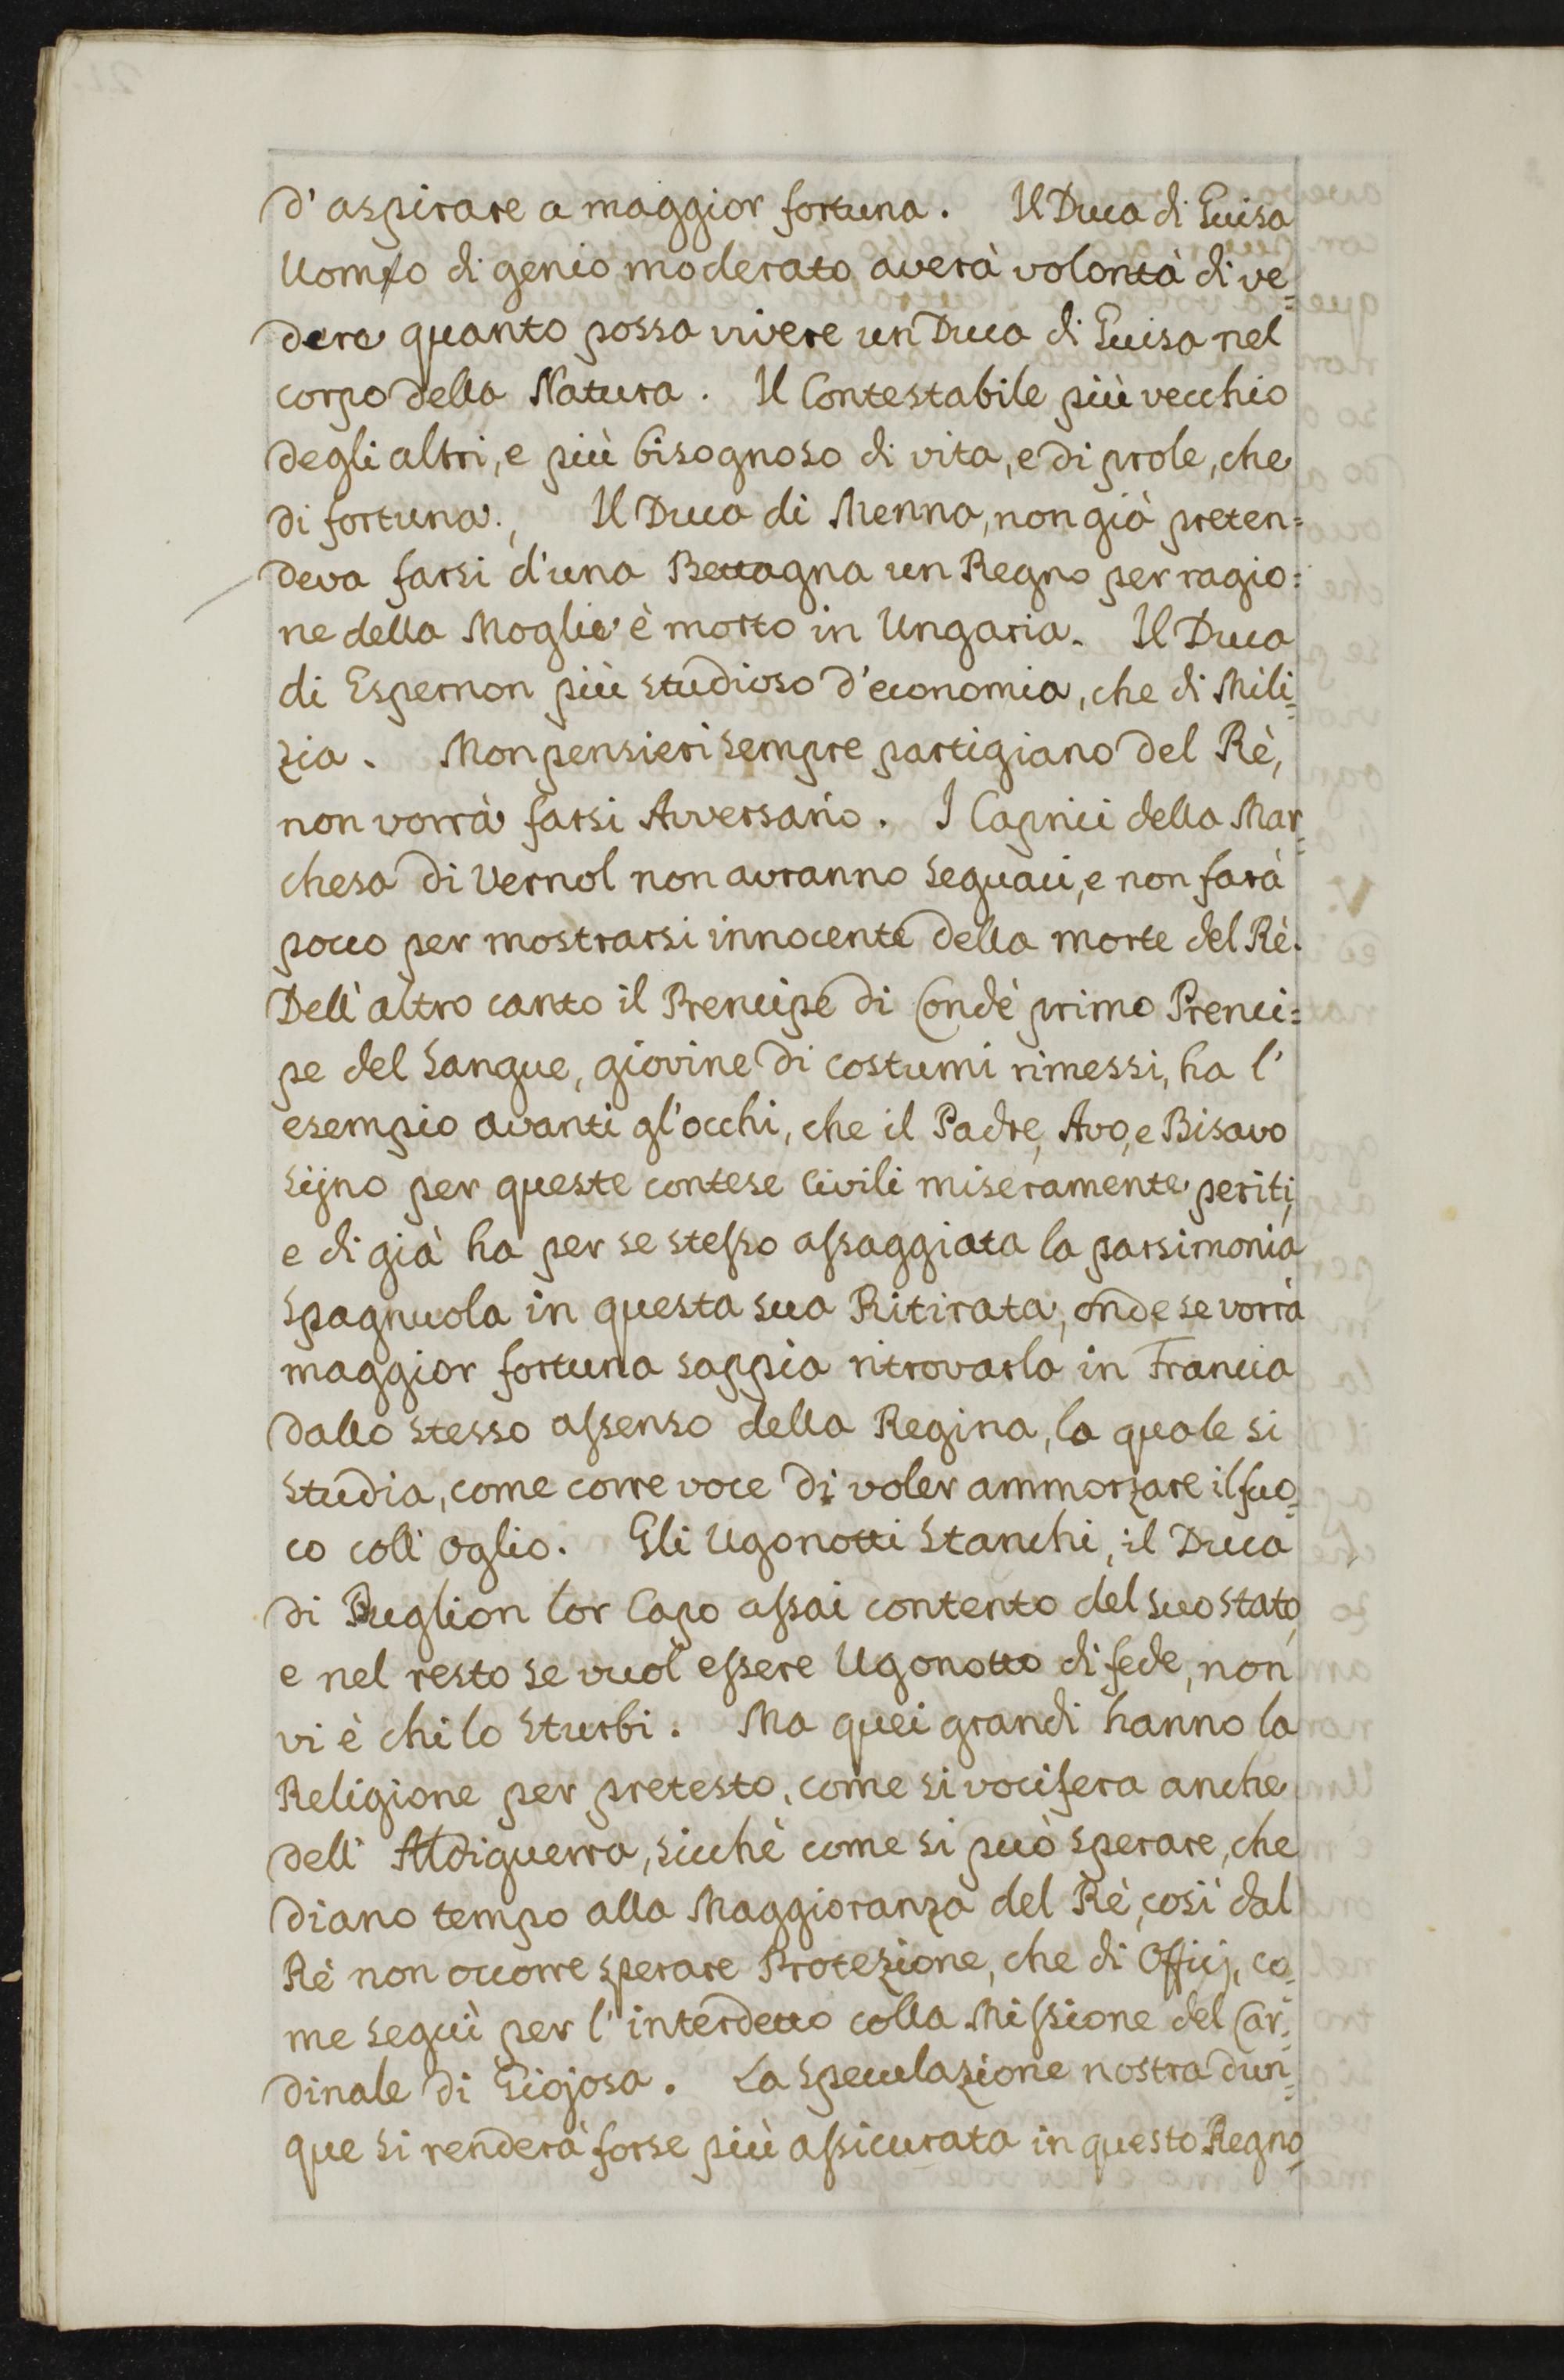 d'aspirare a maggior fortuna. Il Duca di Guisa
Uomo di genio moderato averà volontà di ve=
dere quanto possa vivere un Duca di Guisa nel
corpo della Natura. Il Contestabile più vecchio
degli altri, e più bisognoso di vita, e di prole, che
di fortuna., Il Duca di Menna, non già preten=
deva farsi d'una Bettagna un Regno per ragio=
ne della Moglie è morto in Ungaria. Il Duca
di Espernon più studioso d'economia, che di Mili=
zia. Monpensieri sempre partigiano del Rè,
non vorrà farsi Avversario. I Caprici della Mar=
chesa di Vernol non avranno seguaci, e non farà
poco per mostrarsi innocente della morte del Rè.
Dell'altro canto il Prencipe di Condè primo Prenci=
pe del Sangue, giovine di costumi rimessi, ha l'
esempio avanti gl'occhi, che il Padre, Avo, e Bisavo
sijno per queste contese Civili miseramente periti,
e di già ha per se stesso assaggiata la parsimonia
Spagnuola in questa sua Ritirata, onde se vorrà
maggior fortuna sappia ritrovarla in Francia
dallo stesso assenso della Regina, la quale si
studia, come corre voce di voler ammorzare il fuo=
co coll'oglio. Gli Ugonotti Stanchi, il Duca
di Buglion lor Capo assai contento del suo stato,
e nel resto se vuol essere Ugonotto di fede, non
vi è chi lo sturbi. Ma quei grandi hanno la
Religione per pretesto, come si vocifera anche
dell' Aldiguerra, sicchè come si può sperare, che
diano tempo alla Maggioranza del Rè, così dal
Rè non occorre sperare Protezione, che di Officj, co=
me seguì per l'interdetto colla Missione del Car=
dinale di Giojosa. La Speculazione nostra dun=
que si renderà forse più assicurata in questo Regno,